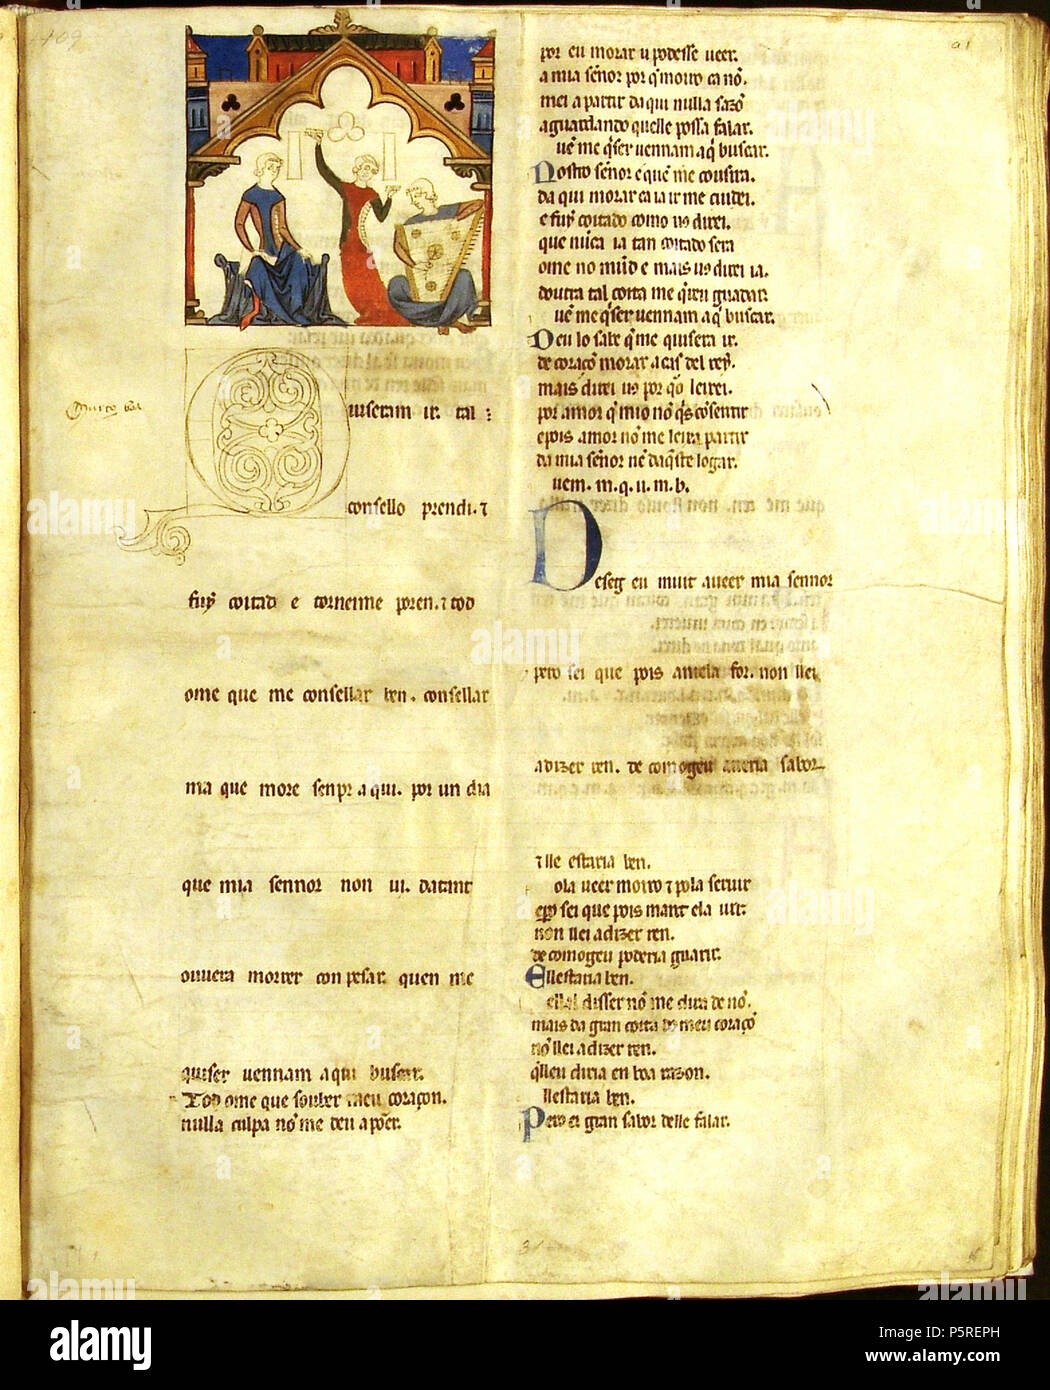 109
91
uiseram ir. tal
consello prendi. ⁊
fuy coitad e torneime poren. ⁊ tod
ome que me consellar ben. consellar
ma que more senpr aqui. por un dia
que mia sennor non ui. datant
ouuera morrer con pesar. quen me
quiser uennam aqui buscar.
Tod ome que souber meu coraçon.
nulla culpa nō me deu apōer.
por eu morar u podesse ueer.
a mia sēnor por q̄ moiro ca nō.
mei a partir daqui nulla sazō
aguardando quelle possa falar.
uē me q̄ser uennam aq̄ buscar.
Nostro sēnor e que me
da qui morar ca ia ir me cuidei.
e fuy coitado como uo direi.
que nūca ia tan coitado sera
ome no mūd e mais uo direi ia.
doutra tal coita me q̄reu guardar.
uē me q̄ser uennam aq̄ buscar.
Deu lo sabe q̄ me quisera ir.
de coraçō morar a cas del rey.
mais direi uo por qo leixei.
por amor q̄ mio nō q̄s cōsentir
e pois amor nō me leixa partir
da mia sēnor nē daq̄ste logar.
uem. m. q. u. m. b.
Deseg eu muit aueer mia sennor
pero sei que pois antela for. non llei
adizer ren. de comogeu aueria sabor
⁊lle estaria ben.
ola ueer moiro ⁊ pola seruir
sei que pois mant ela uir.
non llei adizer ren.
de comogeu poderia guarir.
Ellestaria ben.
disser nō me dira de nō.
mais da gran coita do meu coraçō
nō llei adizer ren.
q̄lleu diria en boa razon.
llestaria ben.
Pero ei gran sabor delle falar.
31
alamy
alamy
Image ID: P5REPH
www.alamy.com